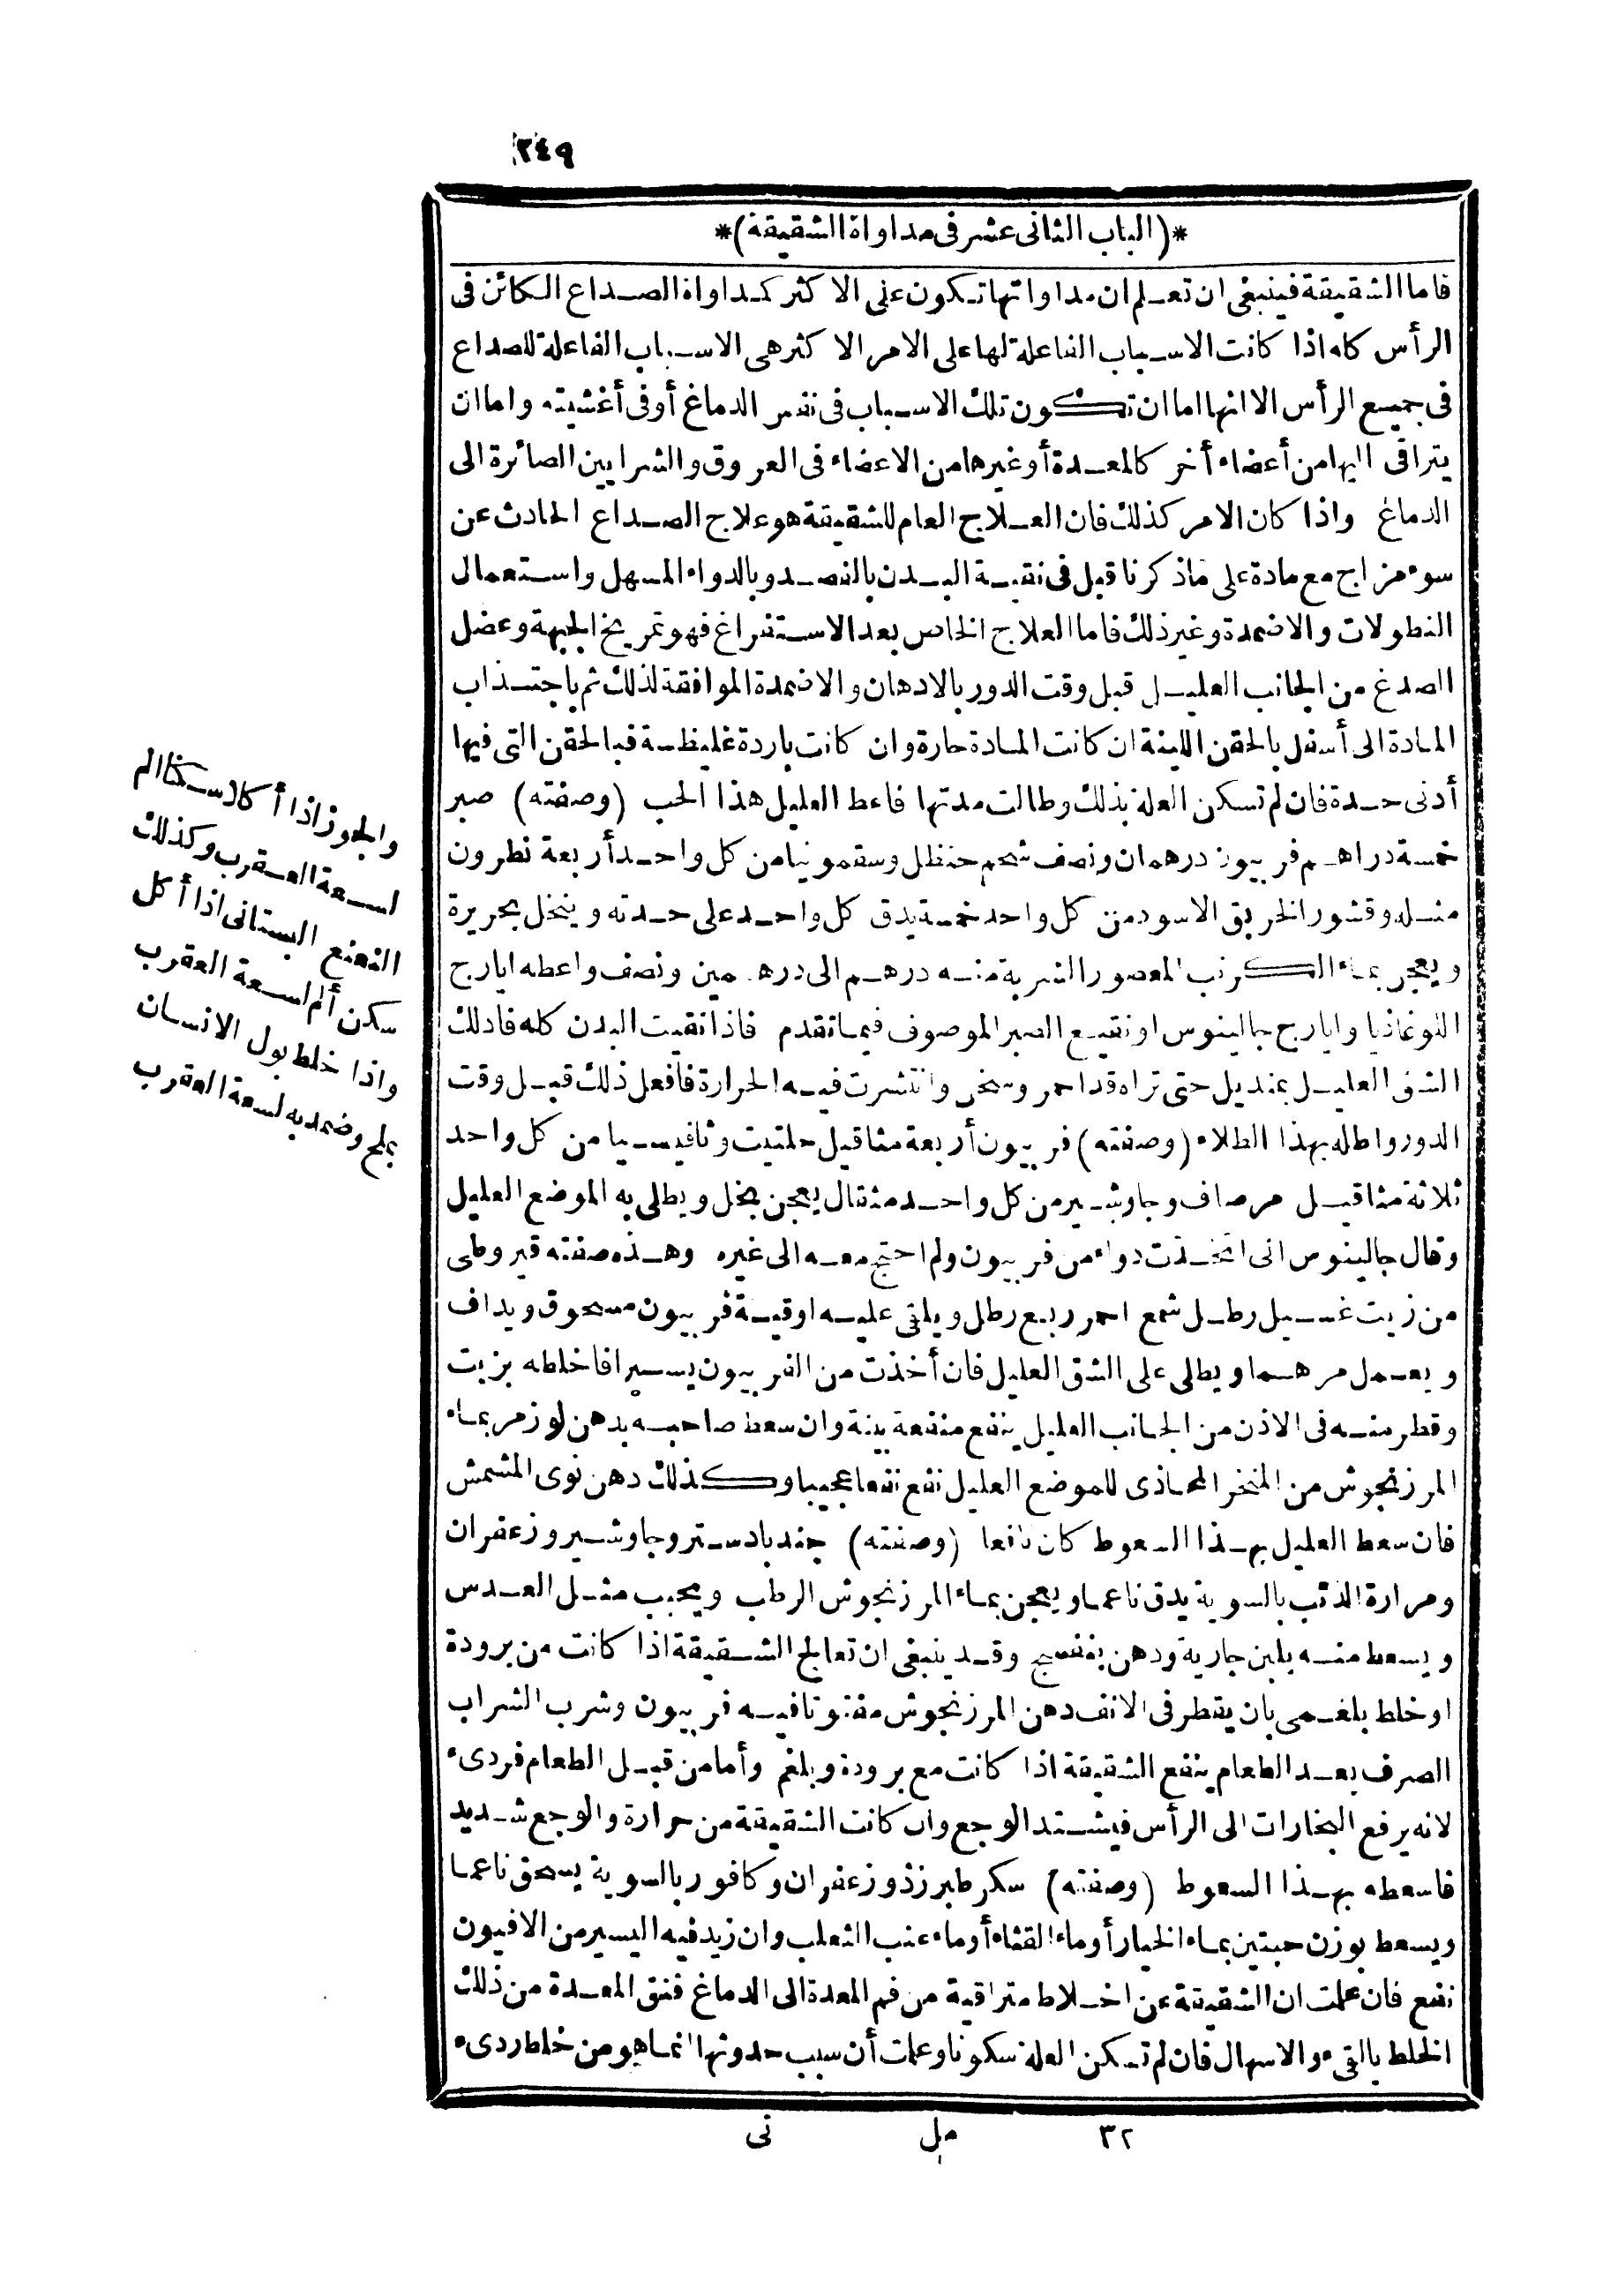 ٢٤٩
*(الباب الثانى عشر فى مداواة الشقيقة)*
فاما الشقيقة فينبغى ان تعلم ان مداواتها تكون على الاكثر كمداواة الصداع الكائن فى
الرأس كله اذا كانت الاسباب الفاعلة لها على الامر الاكثر هى الاسباب الفاعلة للصداع
فى جميع الرأس الا انها اما ان تكون تلك الاسباب فى نفس الدماغ أوفى أغشيته واما ان
يتراقى اليها من أعضاء أخر كالمعدة أوغيرها من الاعضاء فى العروق والشرايين الصائرة الى
الدماغ واذا كان الامر كذلك فان العلاج العام للشقيقة هو علاج الصداع الحادث عن
سوء مزاج مع مادة على ماذكرنا قبل فى تنقية البدن بالفصد وبالدواء المسهل واستعمال
النطولات والاضمدة وغير ذلك فاما العلاج الخاص بعد الاستفراغ فهو تمريخ الجبهة وعضل
الصدغ من الجانب العليل قبل وقت الدور بالادهان والاضمدة الموافقة لذلك ثم باجتذاب
المادة الى أسفل بالحقن اللينة ان كانت المادة حارة وان كانت باردة غليظة فبالحقن التى فيها
أدنى حدة فان لم تسكن العلة بذلك وطالت مدتها فاعط العليل هذا الحب (وصفته) صبر
خمسة دراهم فربيون درهمان ونصف شحم حنظل وسقمونيا من كل واحد أربعة نطرون
مثله وقشور الخربق الاسود من كل واحد خمسة يدق كل واحد على حدته وينخل بحريرة
ويعجن بماء الكرنب المعصور الشربة منه درهم الى درهمين ونصف واعطه ايارج
اللوغاذيا وايارج جالينوس اونقيع الصبر الموصوف فيما تقدم فاذا نقيت البدن كله فادلك
الشق العليل بمنديل حتى تراه قد احمر وسخن وانتشرت فيه الحرارة فافعل ذلك قبل وقت
الدور واطله بهذا الطلاء (وصفته) فربيون أربعة مثاقيل حلتيت وثافيسيا من كل واحد
ثلاثة مثاقيل مر صاف وجاوشير من كل واحد مثقال يعجن بخل ويطلى به الموضع العليل
وقال جالينوس انى اتخذت دواء من فربيون ولم احتج معه الى غيره وهذه صفته قيروطى
من زيت غسيل رطل شمع احمر ربع رطل ويلقى عليه اوقية فربيون مسحوق ويداف
ويعمل مرهما ويطلى على الشق العليل فان أخذت من الفربيون يسيرا فاخلطه بزيت
وقطر منه فى الاذن من الجانب العليل ينفع منفعة بينة وان سعط صاحبه بدهن لوز مر بماء
المرزنجوش من المنخر المحاذى للموضع العليل نفع نفعا عجيبا وكذلك دهن نوى المشمش
فان سعط العليل بهذا السعوط كان نافعا (وصفته) جندبادستر وجاوشير وزعفران
ومرارة الذئب بالسوية يدق ناعما ويعجن بماء المرزنجوش الرطب ويحبب مثل العدس
ويسعط منه بلبن جارية ودهن بنفسج وقد ينبغى ان تعالج الشقيقة اذا كانت من برودة
اوخلط بلغمى بان يقطر فى الانف دهن المرزنجوش مفتوتا فيه فربيون وشرب الشراب
الصرف بعد الطعام ينفع الشقيقة اذا كانت مع برودة وبلغم وأما من قبل الطعام فردىء
لانه يرفع البخارات الى الرأس فيشتد الوجع وان كانت الشقيقة من حرارة والوجع شديد
فاسعطه بهذا السعوط (وصفته) سكر طبرزذ وزعفران وكافور بالسوية يسحق ناعما
ويسعط بوزن حبتين بماء الخيار أوماء القثاء أوماء عنب الثعلب وان زيد فيه اليسير من الافيون
نفع فان علمت ان الشقيقة عن اخلاط متراقية من فم المعدة الى الدماغ فنق المعدة من ذلك
الخلط بالقىء والاسهال فان لم تسكن العلة سكونا وعلمت أن سبب حدوثها انما هو من خلط ردىء
والجوز اذا أكلا سكنا الم
لسعة العقرب وكذلك
النعنع البستانى اذا أكل
سكن ألم لسعة العقرب
واذا خلط بول الانسان
بملح وضمد به لسعة العقرب
٣٢ مل نى